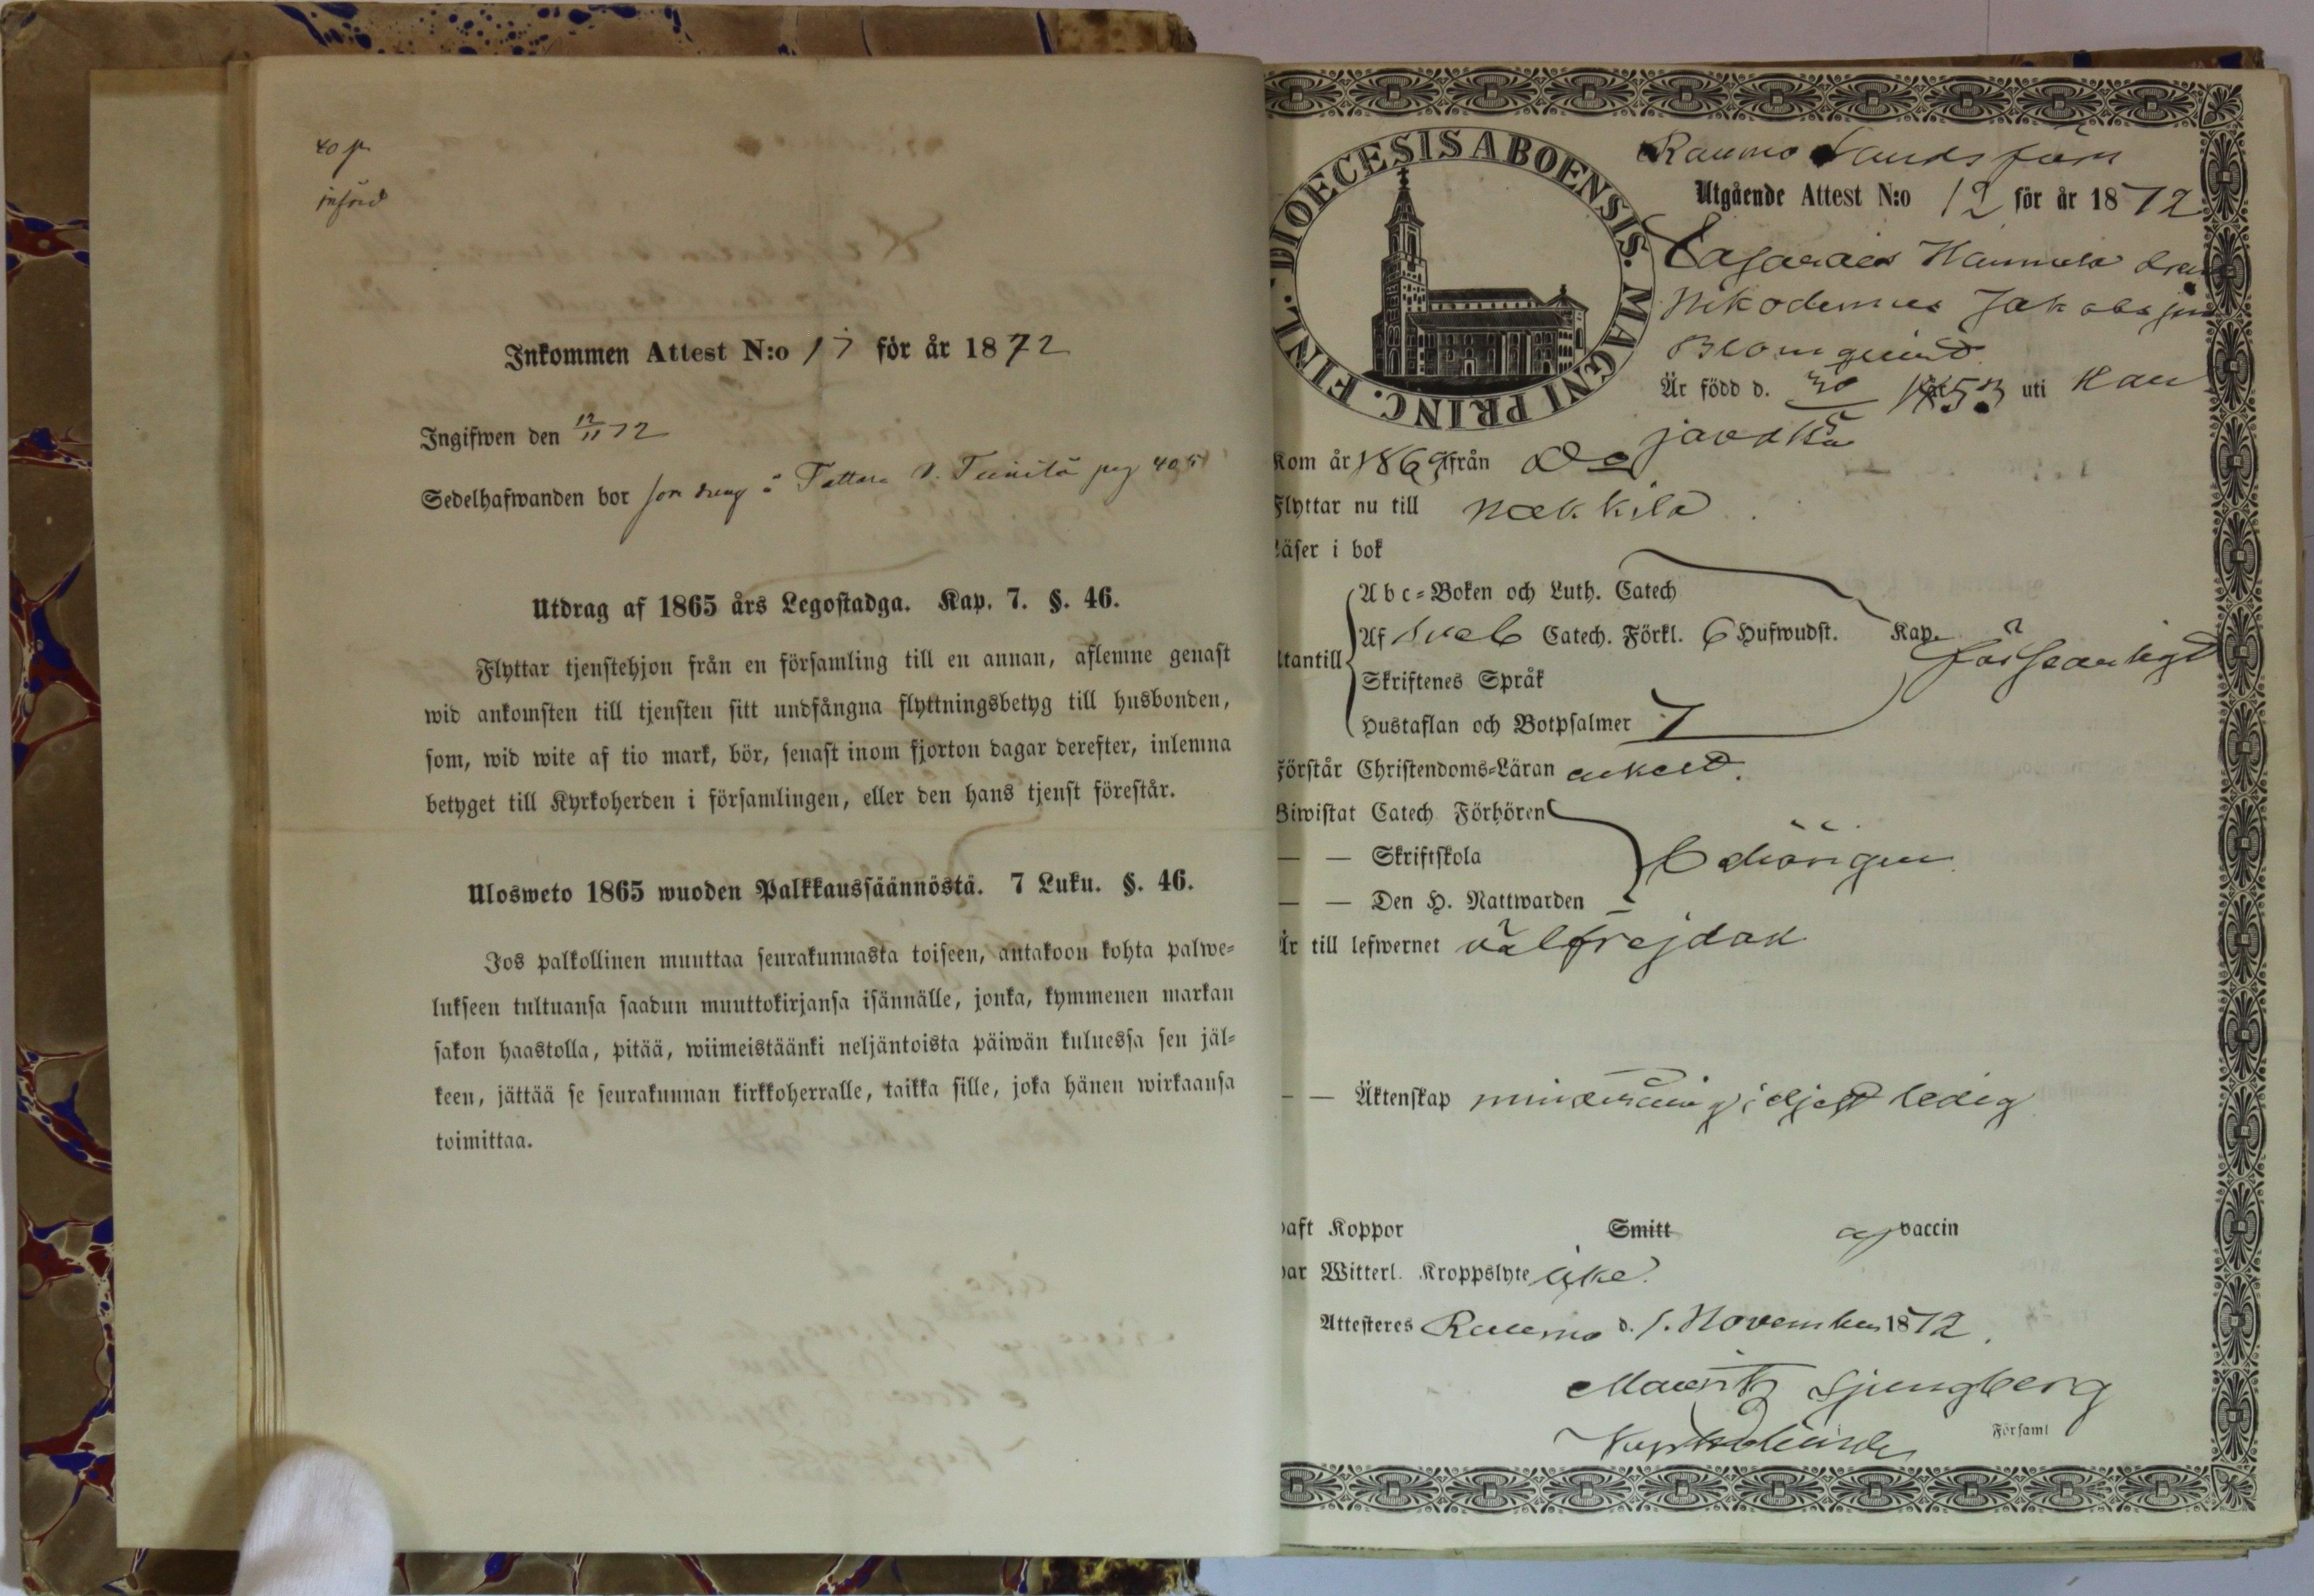 40 p
införd
Inkommen Attest N:o 17 för år 1872
Ingifwen den 12/11 72
Sedelhafwanden bor som dreng å Tattara N. Teinilä pag 405
Utdrag af 1865 års Legostadga. Kap. 7. §. 46.
Flyttar tjenstehjon från en församling till en annan, aflemne genast
wid ankomsten till tjensten sitt undfångna flyttningsbetyg till husbonden,
som, wid wite af tio mark, bör, senast inom fjorton dagar derefter, inlemna
betyget till Kyrkoherden i församlingen, eller den hans tjenst förestår.
Ulosweto 1865 wuoden Palkkaussäännöstä. 7 Luku. §. 46.
Jos palkollinen muuttaa seurakunnasta toiseen, antakoon kohta palwe-
lukseen tultuansa saadun muuttokirjansa isännälle, jonka, kymmenen markan
sakon haastolla, pitää, wiimeistäänki neljäntoista päiwän kuluessa sen jäl-
keen, jättää se seurakunnan kirkkoherralle, taikka sille, joka hänen wirkaansa
toimittaa.
DIOECESIS ABOENSIS. MAGNI PRINC. FINL.
Raumo Lands förs
Utgående Attest N:o 12 för år 1872
Hannula
Nikodemus Jakobsson
Blomqvist
Är född d. 30/5 1853 uti Kau
javdka
Kom år 1869 från Do
Flyttar nu till Nakkila
Läser i bok
Abc-Boken och Luth. Catech
Af Sveb Catech. Förkl. 6 Hufwudst. Kap.
Utantill
försvarligt
Skriftenes Språk
Hustaflan och Botpsalmer 7
Förstår Christendoms-Läran enkelt.
Biwistat Catech Förhören
— — Skriftskola behörigen
— — Den H. Nattwarden
Är till lefwernet välfrejdad
— — Äktenskap minderårig; eljest ledig
Haft Koppor Smitt af vaccin
Har Witterl. Kroppslyte icke.
Attesteres Raumo d. 1. November 1872.
Mauritz Ljungberg
Kyrkoherde Församl